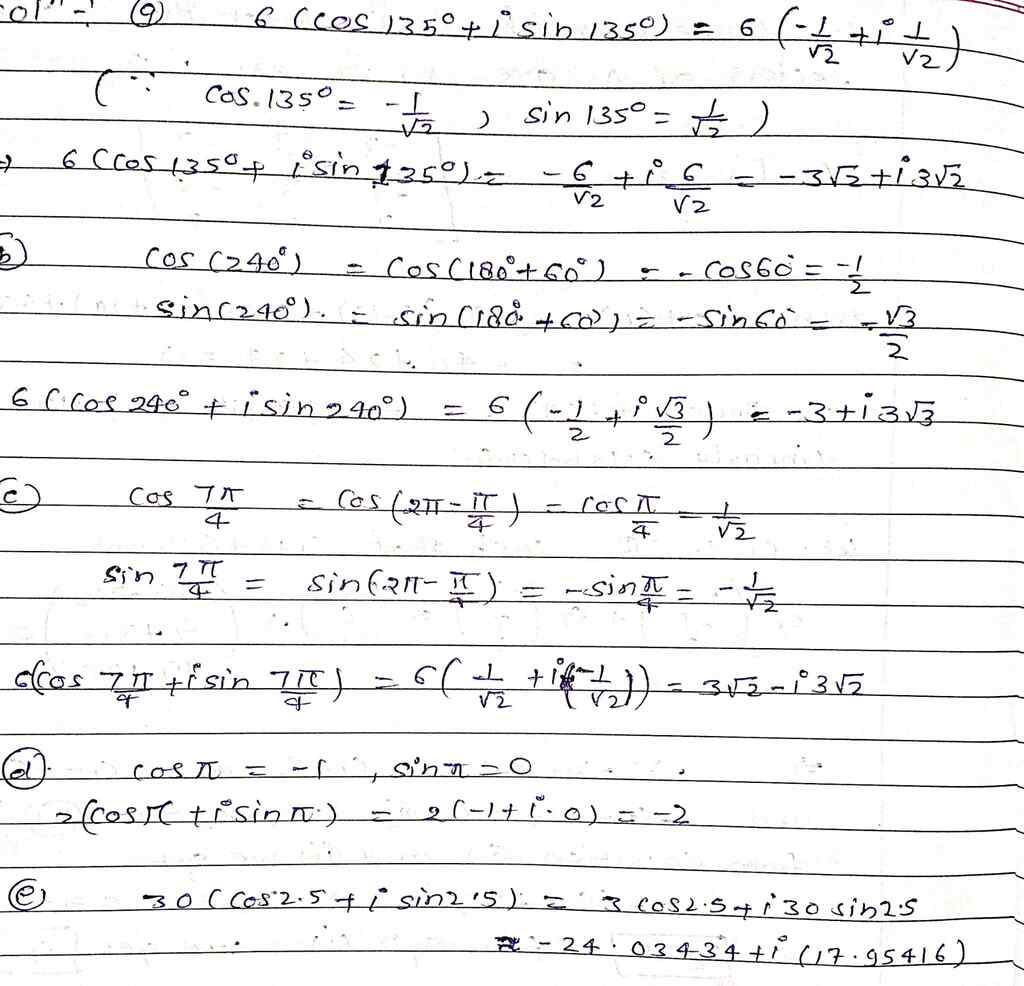 Sol^n :- (a) 6 (cos 135° + i sin 135°) = 6 (-1/√2 + i 1/√2)
( ∵ cos 135° = -1/√2 , sin 135° = 1/√2 )
⇒ 6 (cos 135° + i sin 135°) = -6/√2 + i 6/√2 = -3√2 + i 3√2
(b) cos (240°) = cos (180° + 60°) = -cos 60° = -1/2
sin (240°) = sin (180° + 60°) = -sin 60° = -√3/2
6 (cos 240° + i sin 240°) = 6 (-1/2 + i √3/2) = -3 + i 3√3
(c) cos 7π/4 = cos (2π - π/4) = cos π/4 = 1/√2
sin 7π/4 = sin (2π - π/4) = -sin π/4 = -1/√2
6(cos 7π/4 + i sin 7π/4) = 6 (1/√2 + i(-1/√2)) = 3√2 - i 3√2
(d) cos π = -1 , sin π = 0
2(cos π + i sin π) = 2(-1 + i·0) = -2
(e) 30 (cos 2.5 + i sin 2.5) = 3 cos 2.5 + i 30 sin 2.5
≈ -24.03434 + i (17.95416)